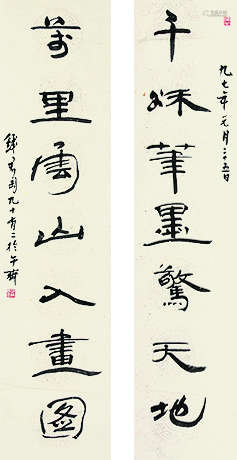 九七年元月
千秋筆墨驚天地
萬里雲山入畫圖
錢君匋九十有二於午齋